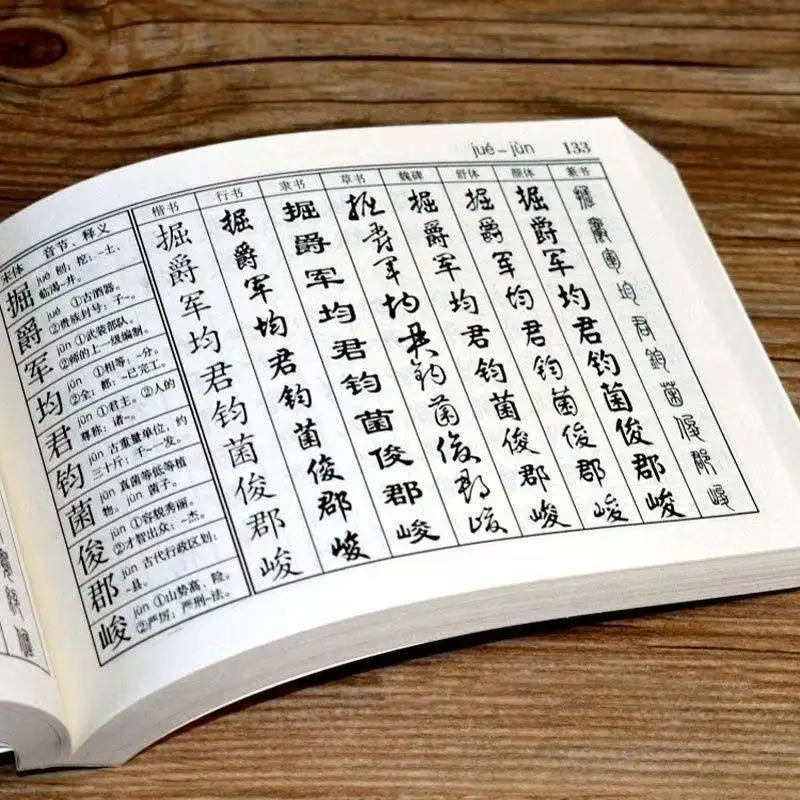 jué – jùn 133
宋体 音节、释义 楷书 行书 隶书 草书 魏碑 舒体 颜体 篆书
掘 jué 刨;挖:~土、临渴~井。 掘 掘 掘 掘 掘 掘 掘 掘
爵 jué ①古酒器。②贵族封号:子~。 爵 爵 爵 爵 爵 爵 爵 爵
军 jūn ①武装部队。②师的上一级编制。 军 军 军 军 军 军 军 軍
均 jūn ①相等:~分。②全;都:~已完工。 均 均 均 均 均 均 均 均
君 jūn ①君主。②人的尊称:诸~。 君 君 君 君 君 君 君 君
钧 jūn 古重量单位,约三十斤:千~一发。 钧 钧 钧 钧 钧 钧 钧 鈞
菌 jūn 真菌等低等植物。jùn 菌子。 菌 菌 菌 菌 菌 菌 菌 菌
俊 jùn ①容貌秀丽。②才智出众:~杰。 俊 俊 俊 俊 俊 俊 俊 俊
郡 jùn 古代行政区划:~县。 郡 郡 郡 郡 郡 郡 郡 郡
峻 jùn ①山势高、险。②严厉:严刑~法。 峻 峻 峻 峻 峻 峻 峻 峻